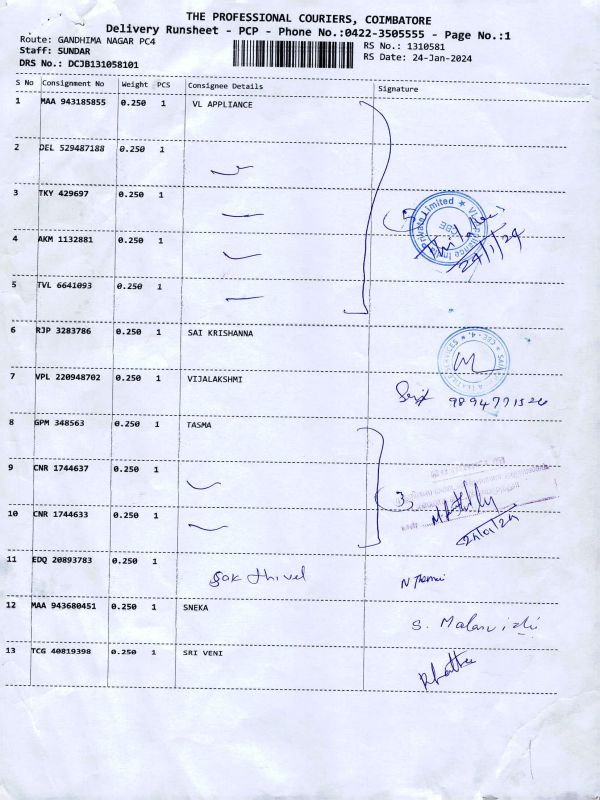 THE PROFESSIONAL COURIERS, COIMBATORE
Delivery Runsheet - PCP - Phone No.:0422-3505555 - Page No.:1
Route: GANDHIMA NAGAR PC4
RS No.: 1310581
Staff: SUNDAR
RS Date: 24-Jan-2024
DRS No.: DCJB131058101
S No Consignment No Weight PCS Consignee Details Signature
1 MAA 943185855 0.250 1 VL APPLIANCE
2 DEL 529487188 0.250 1
3 TKY 429697 0.250 1
4 AKM 1132881 0.250 1
24/1/24
5 TVL 6641093 0.250 1
6 RJP 3283786 0.250 1 SAI KRISHANNA
7 VPL 220948702 0.250 1 VIJALAKSHMI
9894771526
8 GPM 348563 0.250 1 TASMA
9 CNR 1744637 0.250 1
3
10 CNR 1744633 0.250 1
24/01/24
11 EDQ 20893783 0.250 1 Sakthivel
12 MAA 943680451 0.250 1 SNEKA
S. Malarvizhi
13 TCG 40819398 0.250 1 SRI VENI